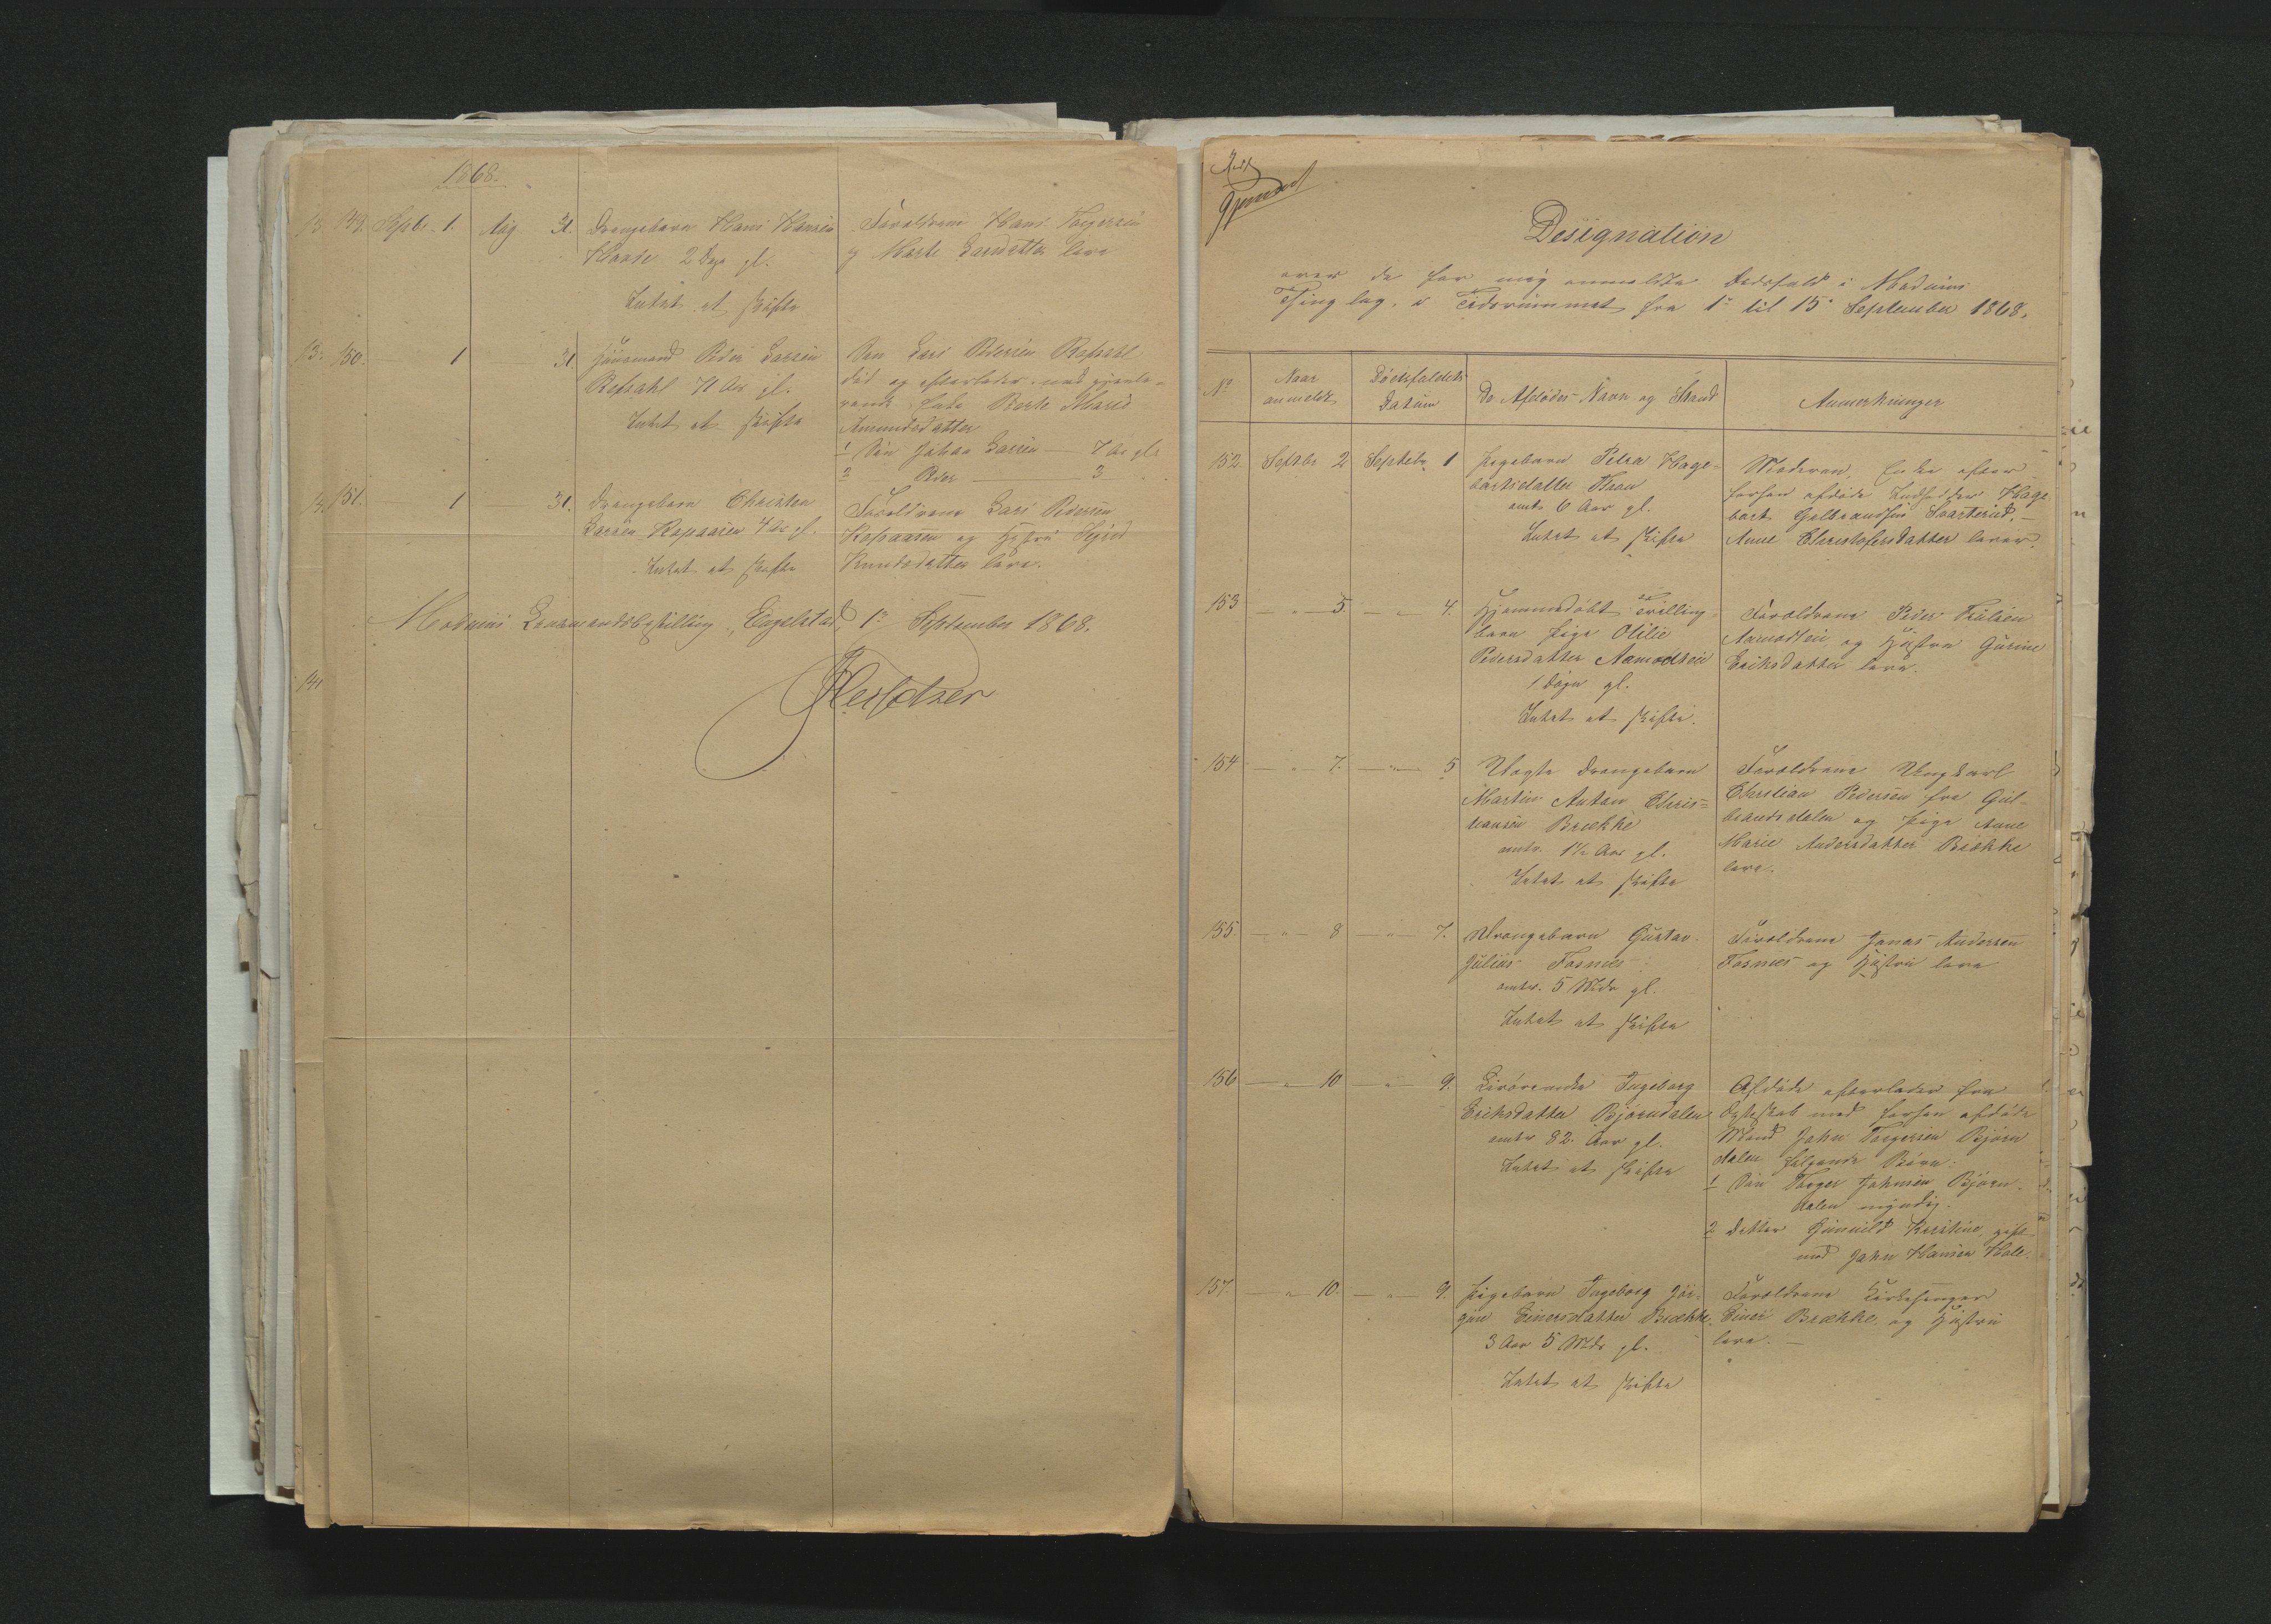 1868.
149. Septbr. 1. Aug. 31. Drengebarn Hans Hansen
Haade 2 Dage gl.
Intet at skifte
Forældrene Hans Torgersen
og Marte Larsdatter leve
13. 150. 1 31 Huusmand Peder Larsen
Refsahl 71 Aar gl.
Intet at skifte
Søn Lars Pedersen Refsahl
død og efterlader med gjenle-
vende Enke Berte Marie
Amundsdatter
1 Søn Johan Larsen — 7 Aar gl.
2 — Peder — 3
13. 151. 1 31. Drengebarn Christen
Larsen Kopaasen 4 Aar gl.
Intet at skifte
Forældrene Lars Pedersen
Kopaasen og Hustru Sigrid
Knudsdatter leve.
Modums Lensmandsbestilling, Engelstad, 1ste September 1868.
14
Designation
over de for mig anmeldte Dødsfald i Modums
Thinglag, i Tidsrummet fra 1ste til 15de September 1868.
No
Naar
anmeldt
Dødsfaldets
Datum
De Afdødes Navn og Stand
Anmerkninger
152. Septbr 2 Septebr 1 Pigebarn Petra Hage-
bartsdatter
omtr. 6 Aar gl.
Intet at skifte
Moderen, Enke efter
forhen afdøde Indsidder Hage-
bart Gulbrandsen Svarterud, —
Anne Christofersdatter lever.
153 — " — 5. — " — 4. Hjemmedøbt Tvilling-
barn Pige Otilie
Pedersdatter Aamodteie
1 Døgn gl.
Intet at skifte.
Forældrene Peder Paulsen
Aamodteie og Hustru Gurine
Eriksdatter leve.
154 — " — 7. — " — 5 Uægte Drengebarn
Martin Anton Chris-
tiansen Brække
omtr. 1½ Aar gl.
Intet at skifte
Forældrene Ungkarl
Christian Pedersen fra Gul-
brandsdalen og Pige Anne
Marie Andersdatter Brække
leve.
155. — " — 8 — " — 7. Drengebarn Gustav
Julius Fosnæs
omtr. 5 Mdr gl.
Intet at skifte
Forældrene Jonas Andersen
Fosnæs og Hustru leve
156 — " — 10 — " — 9. Livørende Ingeborg
Eriksdatter Bjørndalen
omtr 82. Aar gl.
Intet at skifte
Afdøde efterlader fra
Ægteskab med forhen afdøde
Mand John Torgersen Bjørn
dalen følgende Børn:
1 Søn Torger Johnsen Bjørn-
dalen myndig.
2 Datter Gunnild Kirstine, gift
med John Hansen Hole.
157. — " — 10. — " — 9. Pigebarn Ingeborg Jør-
gine Einersdatter Brække.
3 Aar 5 Mdr gl.
Intet at skifte
Forældrene Kirkesanger
Einer Brække og Hustru
leve. —